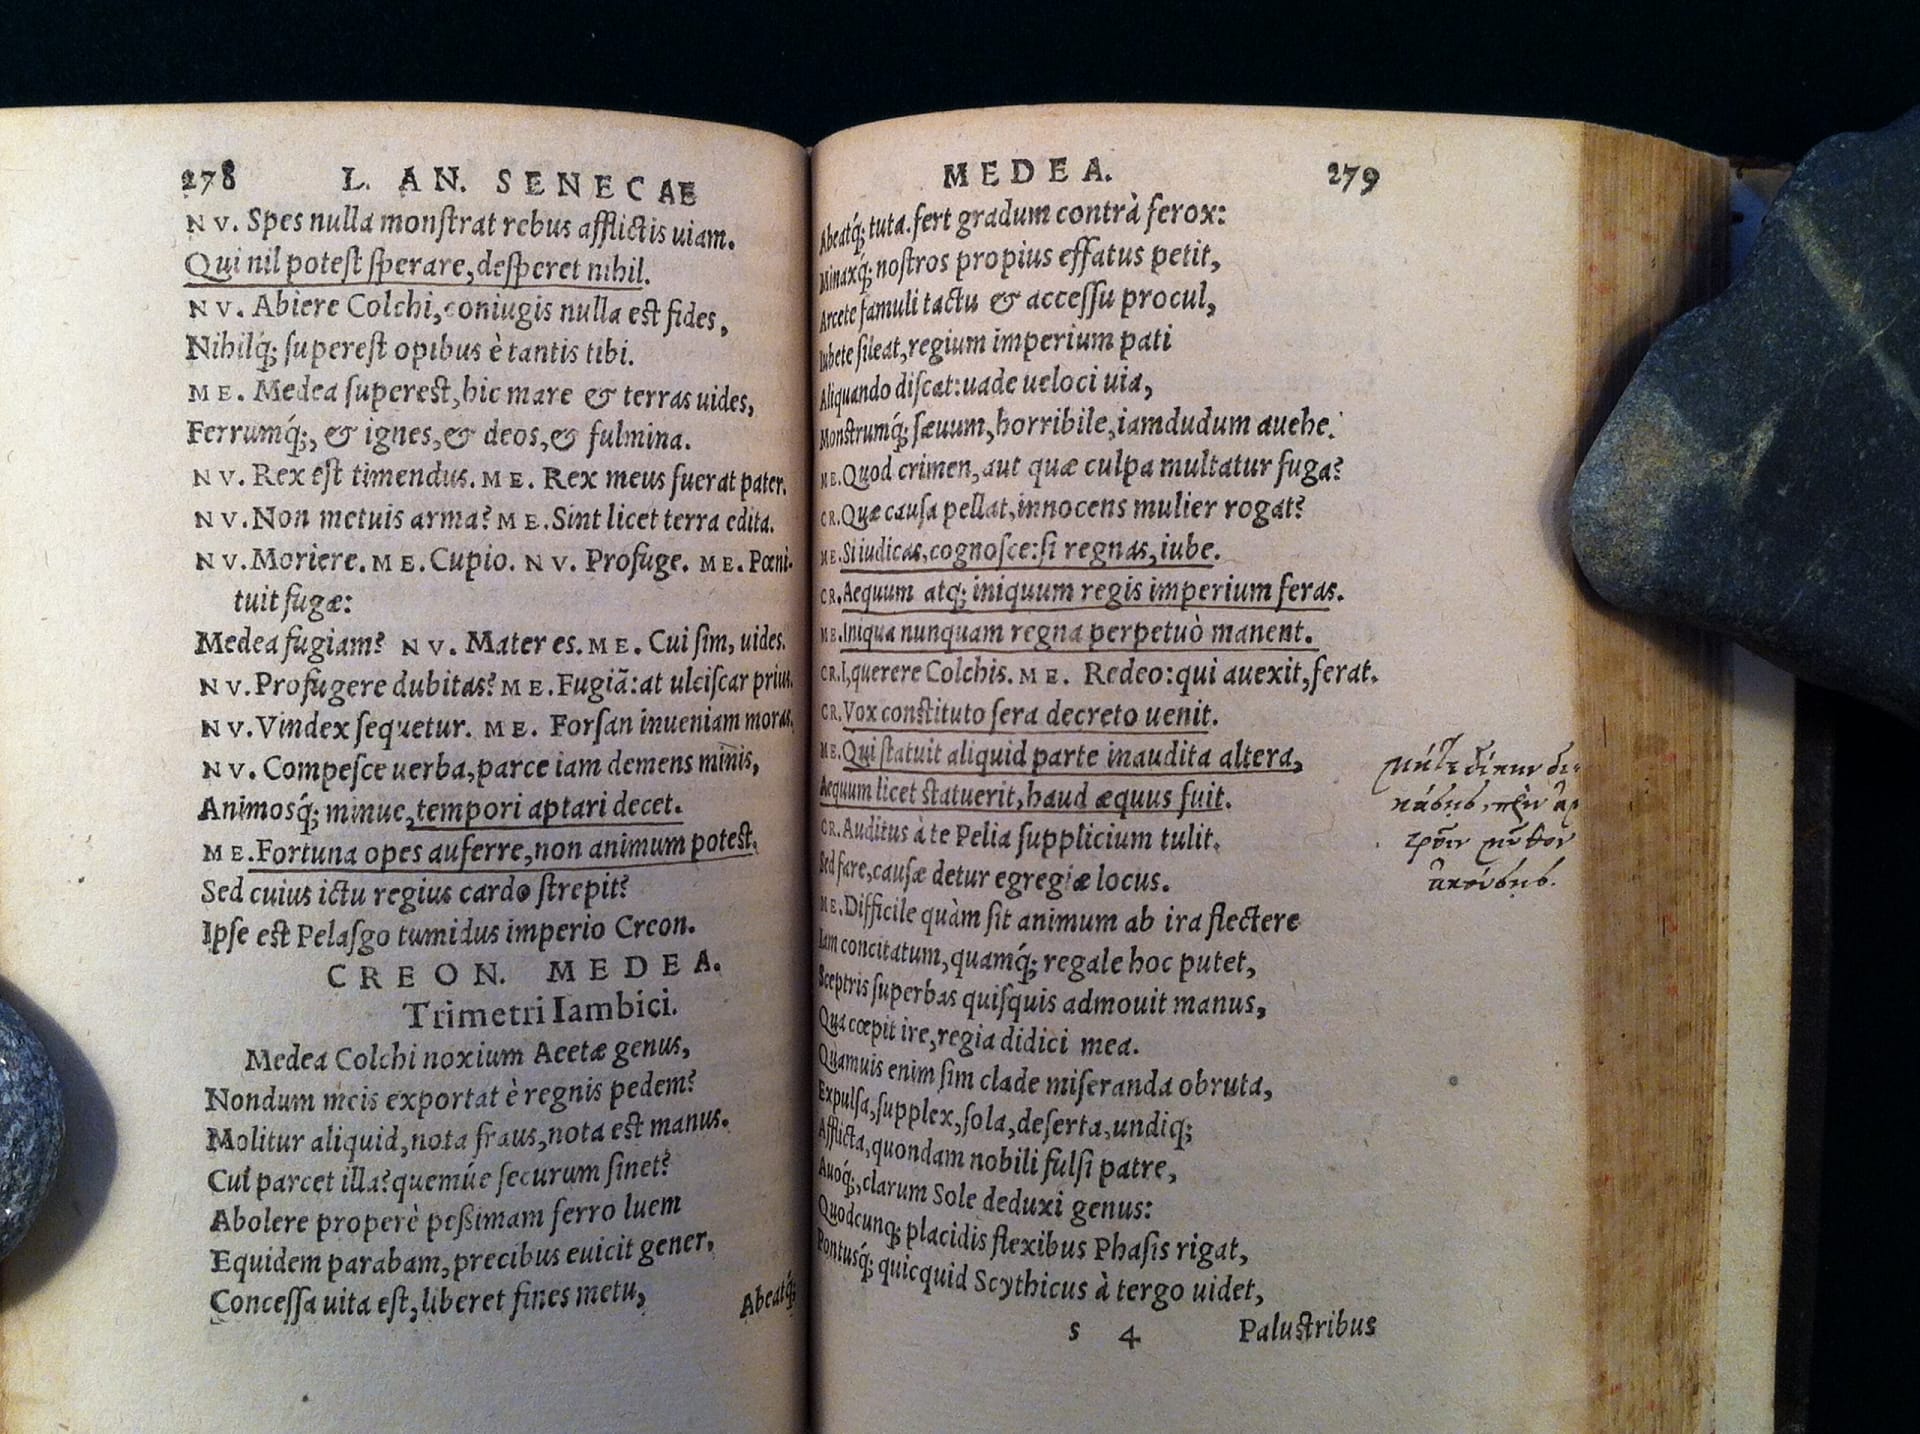 278 L. AN. SENECAE
NV. Spes nulla monſtrat rebus afflictis uiam.
Qui nil poteſt ſperare, deſperet nihil.
NV. Abiere Colchi, coniugis nulla eſt fides,
Nihilq́; ſupereſt opibus è tantis tibi.
ME. Medea ſupereſt, hic mare & terras uides,
Ferrumq́;, & ignes, & deos, & fulmina.
NV. Rex eſt timendus. ME. Rex meus fuerat pater.
NV. Non metuis arma? ME. Sint licet terra edita.
NV. Moriere. ME. Cupio. NV. Profuge. ME. Pœni-
tuit fugæ:
Medea fugiam? NV. Mater es. ME. Cui ſim, uides.
NV. Profugere dubitas? ME. Fugiã: at ulciſcar prius.
NV. Vindex ſequetur. ME. Forſan inueniam moras.
NV. Compeſce uerba, parce iam demens minis,
Animosq́; minue, tempori aptari decet.
ME. Fortuna opes auferre, non animum poteſt.
Sed cuius ictu regius cardo ſtrepit?
Ipſe eſt Pelaſgo tumidus imperio Creon.
CREON. MEDEA.
Trimetri Iambici.
Medea Colchi noxium Aeetæ genus,
Nondum meis exportat è regnis pedem?
Molitur aliquid, nota fraus, nota eſt manus.
Cui parcet illa? quemúe ſecurum ſinet?
Abolere properè peßimam ferro luem
Equidem parabam, precibus euicit gener.
Conceſſa uita eſt, liberet fines metu,
Abeatq́;
MEDEA. 279
Abeatq́; tuta. fert gradum contrà ferox:
Minaxq́; noſtros propius effatus petit,
Arcete famuli tactu & acceſſu procul,
Iubete ſileat, regium imperium pati
Aliquando diſcat: uade ueloci uia,
Monſtrumq́; ſæuum, horribile, iamdudum auehe.
ME. Quod crimen, aut quæ culpa multatur fuga?
CR. Quæ cauſa pellat, innocens mulier rogat?
ME. Si iudicas, cognoſce: ſi regnas, iube.
CR. Aequum atq; iniquum regis imperium feras.
ME. Iniqua nunquam regna perpetuò manent.
CR. I, querere Colchis. ME. Redeo: qui auexit, ferat.
CR. Vox conſtituto ſera decreto uenit.
ME. Qui ſtatuit aliquid parte inaudita altera,
Aequum licet ſtatuerit, haud æquus fuit.
CR. Auditus à te Pelia ſupplicium tulit.
Sed fare, cauſæ detur egregiæ locus.
ME. Difficile quàm ſit animum ab ira flectere
Iam concitatum, quamq́; regale hoc putet,
Sceptris ſuperbas quiſquis admouit manus,
Qua cœpit ire, regia didici mea.
Quamuis enim ſim clade miſeranda obruta,
Expulſa, ſupplex, ſola, deſerta, undiq;
Afflicta, quondam nobili fulſi patre,
Auoq́;, clarum Sole deduxi genus:
Quodcunq; placidis flexibus Phaſis rigat,
Pontusq́; quicquid Scythicus à tergo uidet,
S 4 Palustribus
μήτε δίκην δι-
κάσῃς, πρὶν ἀμ
μῦθον
ἀκούσῃς.